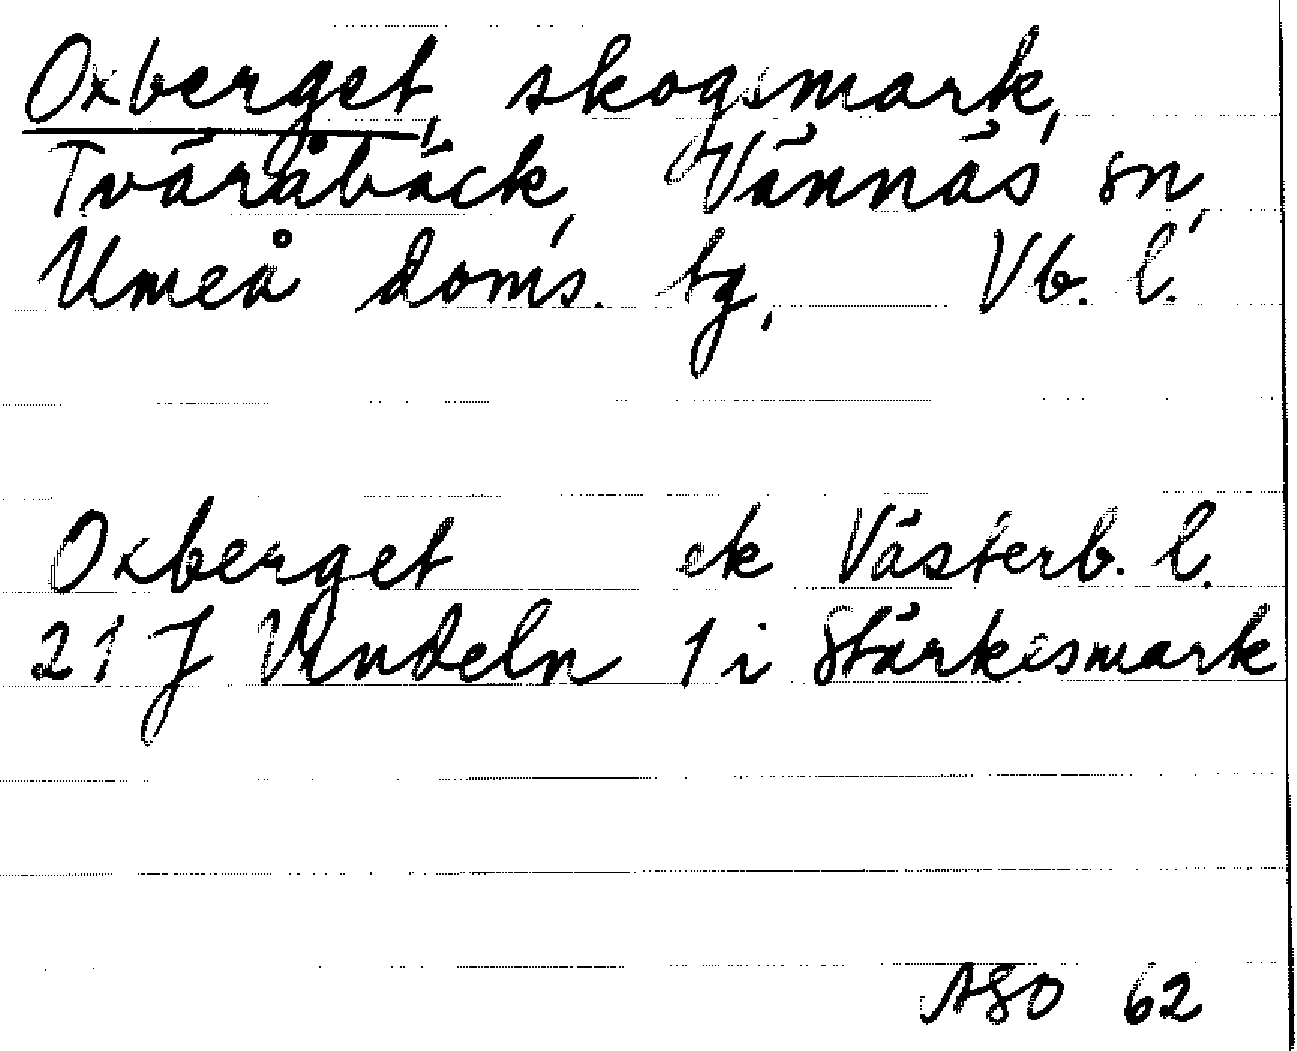 Oxberget, skogsmark,
Tväråbäck, Vännäs sn,
Umeå doms. tg, Vb. l.
Oxberget ek Västerb. l.
21 J Vindeln 1 i Stärkesmark
ASO 62